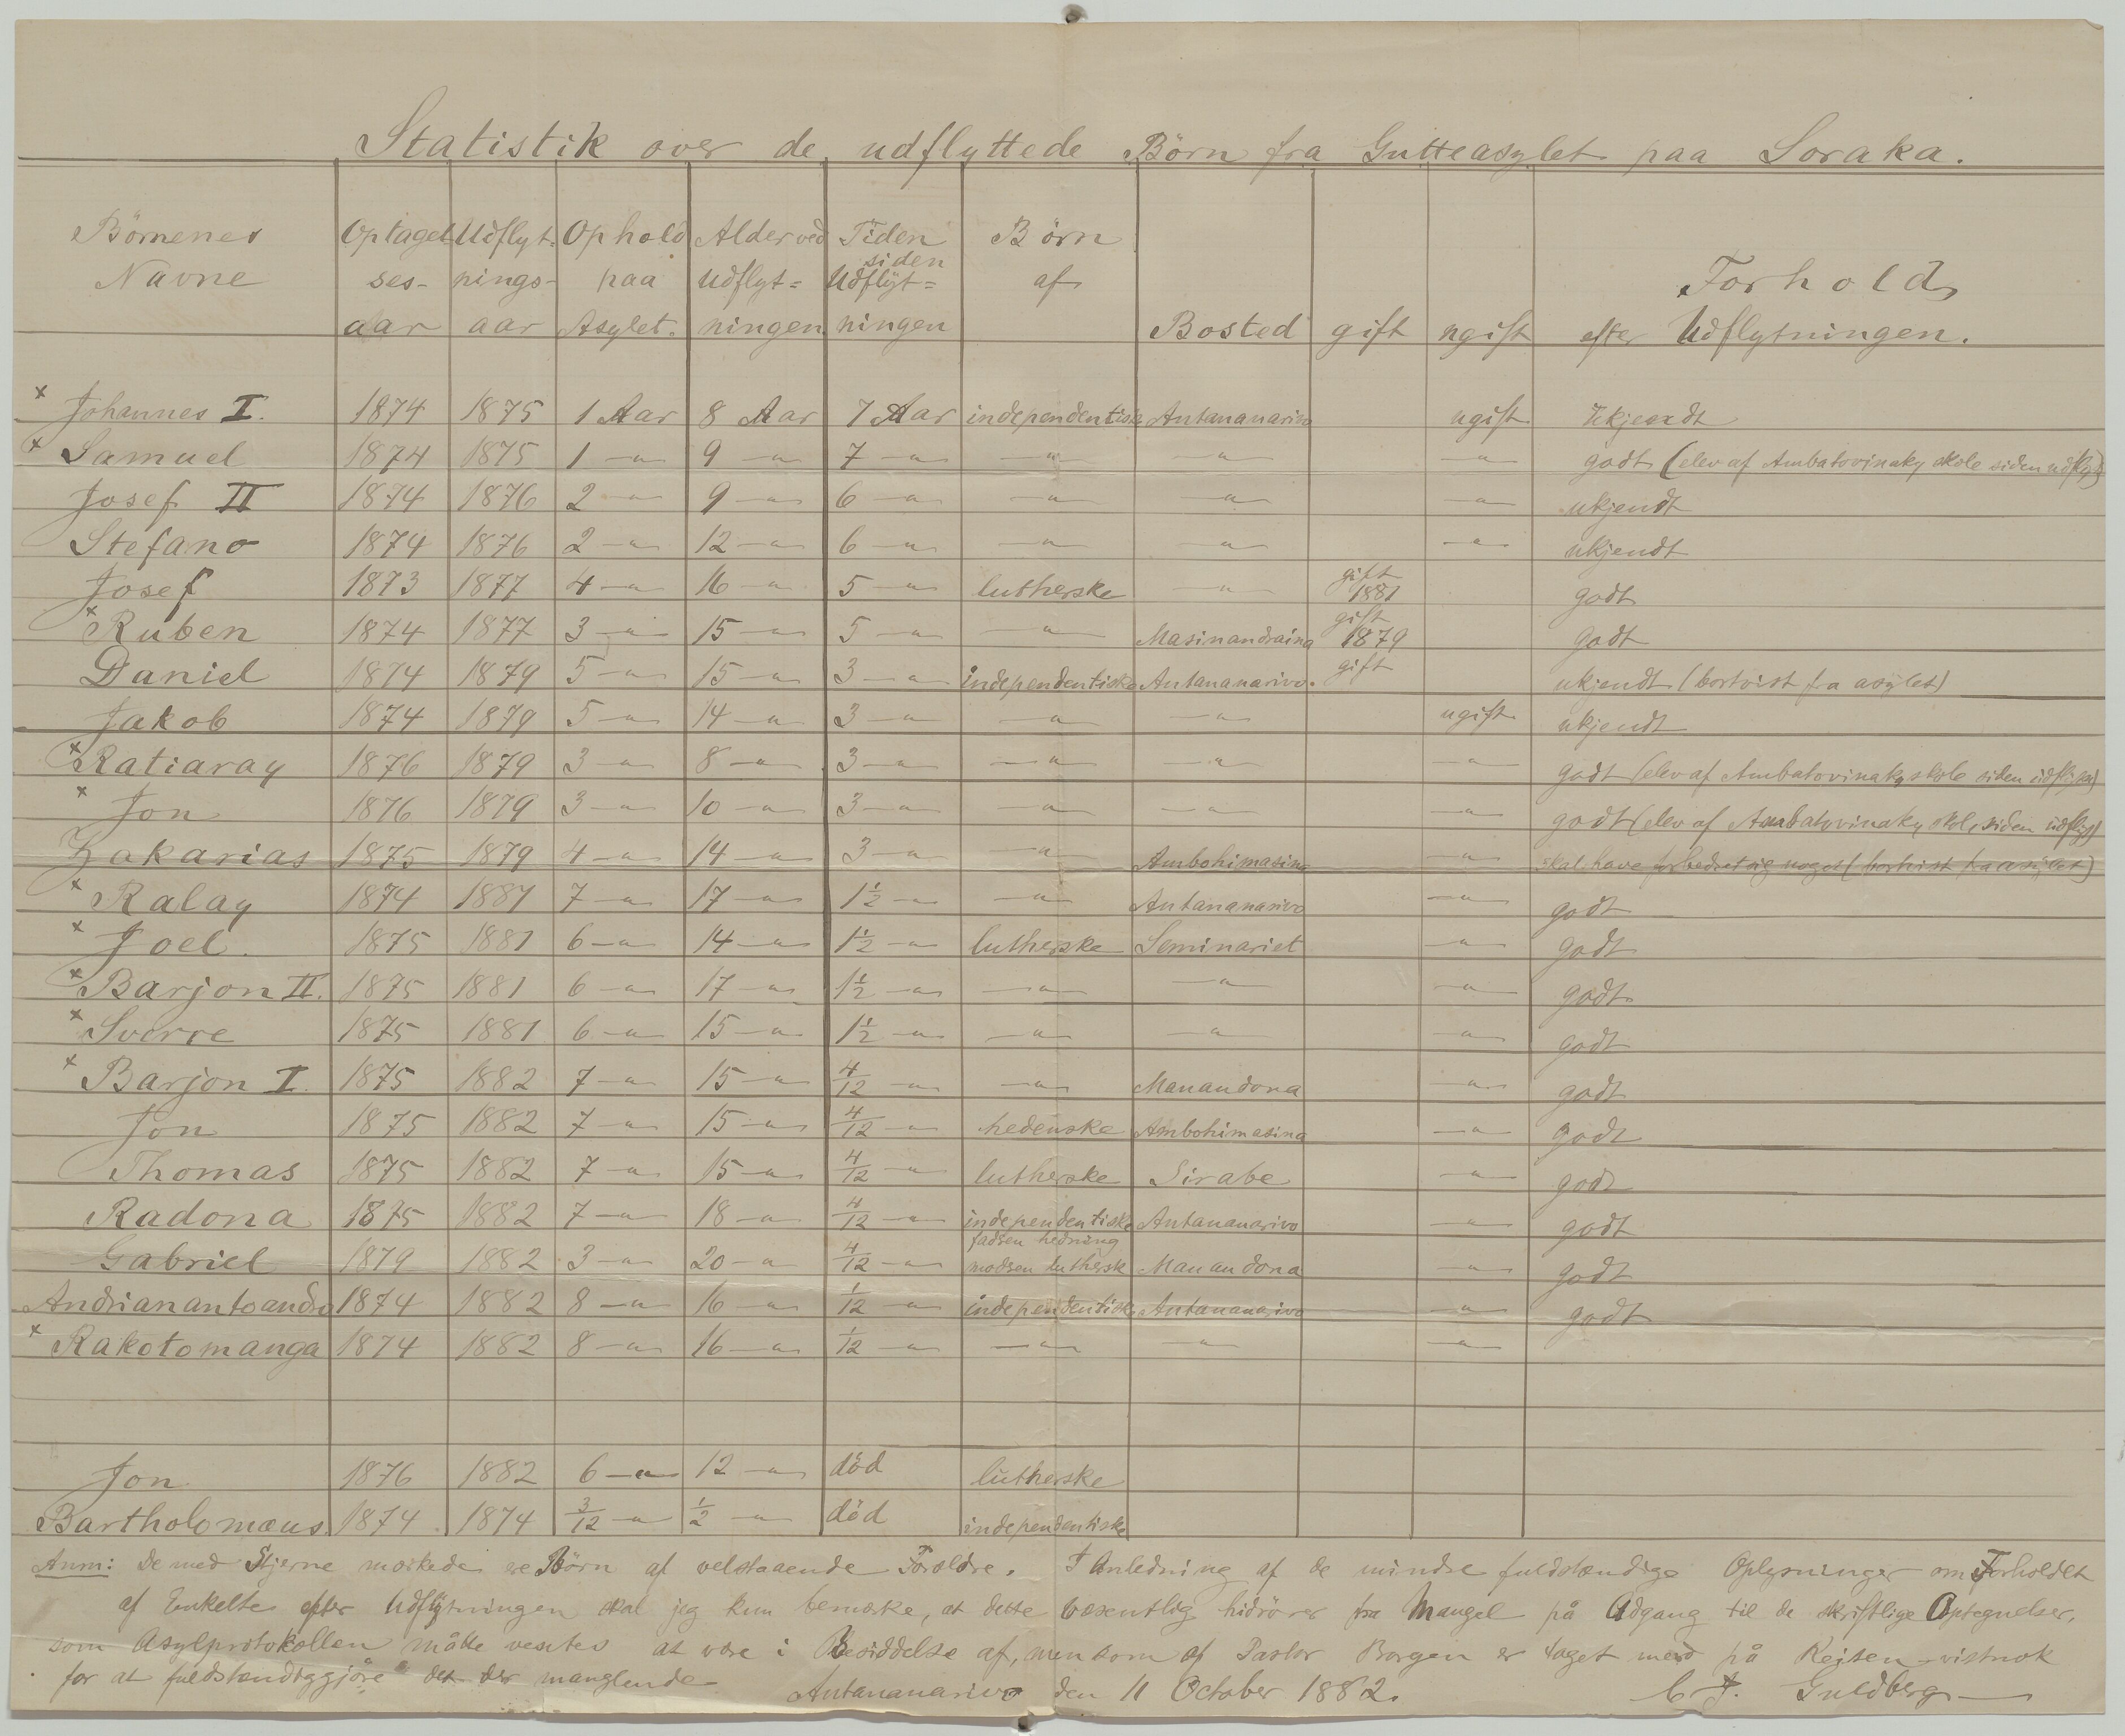 Statistik over de udflyttede Börn fra Gutteasylet paa Soraka.
Börnenes Navne | Optagelses-aar | Udflyt-nings-aar | Ophold paa Asylet. | Alder ved Udflyt=ningen | Tiden siden Udflyt=ningen | Börn af | Bosted | gift | ugift | Forhold efter Udflytningen.
x Johannes I. 1874 1875 1 Aar 8 Aar 7 Aar independentiske Antananarivo ugift Ukjendt
x Samuel 1874 1875 1 —"— 9 —"— 7 —"— —"— —"— —"— godt (elev af Ambatovinaky skole siden udflyt)
Josef II 1874 1876 2 —"— 9 —"— 6 —"— —"— —"— —"— ukjendt
Stefano 1874 1876 2 —"— 12 —"— 6 —"— —"— —"— —"— ukjendt
Josef 1873 1877 4 —"— 16 —"— 5 —"— lutherske —"— gift 1881 godt
x Ruben 1874 1877 3 —"— 15 —"— 5 —"— —"— Masinandraina gift 1879 godt
Daniel 1874 1879 5 —"— 15 —"— 3 —"— independentiske Antananarivo. gift ukjendt (bortvist fra asylet)
Jakob 1874 1879 5 —"— 14 —"— 3 —"— —"— —"— ugift ukjendt
x Ratiaray 1876 1879 3 —"— 8 —"— 3 —"— —"— —"— —"— godt (elev af Ambatovinaky skole siden udflytn)
x Jon 1876 1879 3 —"— 10 —"— 3 —"— —"— —"— —"— godt (elev af Ambatovinaky skole siden udflyt)
Zakarias 1875 1879 4 —"— 14 —"— 3 —"— —"— Ambohimasina —"— skal have forbedret sig noget (bortvist fra asylet)
x Ralay 1874 1881 7 —"— 17 —"— 1½ —"— —"— Antananarivo —"— godt
x Joel. 1875 1881 6 —"— 14 —"— 1½ —"— lutherske Seminariet —"— godt
x Barjon II. 1875 1881 6 —"— 17 —"— 1½ —"— —"— —"— —"— godt
x Sverre 1875 1881 6 —"— 15 —"— 1½ —"— —"— —"— —"— godt
x Barjon I. 1875 1882 7 —"— 15 —"— 4/12 —"— —"— Manandona —"— godt
Jon 1875 1882 7 —"— 15 —"— 4/12 —"— hedenske Ambohimasina —"— godt
Thomas 1875 1882 7 —"— 15 —"— 4/12 —"— lutherske Sirabe —"— godt
Radona 1875 1882 7 —"— 18 —"— 4/12 —"— independentiske Antananarivo —"— godt
Gabriel 1879 1882 3 —"— 20 —"— 4/12 —"— fadren hedning modren luthersk Manandona —"— godt
Andrianantoandro 1874 1882 8 —"— 16 —"— 1/12 —"— independentiske Antananarivo —"— godt
x Rakotomanga 1874 1882 8 —"— 16 —"— 1/12 —"— —"— —"— —"—
Jon 1876 1882 6 —"— 12 —"— död lutherske
Bartholomæus 1874 1874 3/12 —"— ½ —"— död independentiske
Anm: De med Stjerne mærkede ere Börn af velstaaende Forældre. I Anledning af de mindre fuldstændige Oplysninger om Forholdet
af Enkelte efter Udflytningen skal jeg kun bemærke, at dette væsentlig hidrörer fra Mangel på Adgang til de skriftlige Optegnelser,
som Asylprotokollen måtte ventes at være i Besiddelse af, men som af Pastor Borgen er taget med på Reisen vistnok
for at fuldstændiggjöre det der manglende
Antananarivo den 11 October 1882. C. F. Guldberg